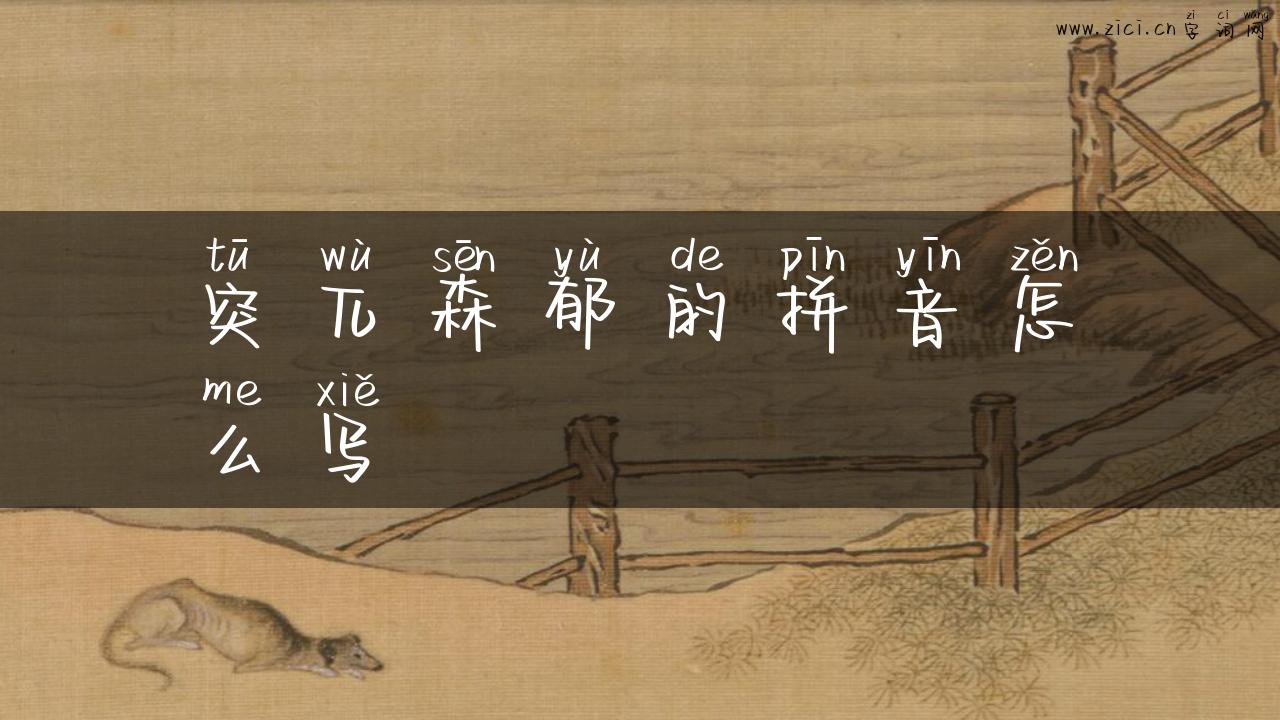 zì cí wǎng
www.zici.cn 字词网
tū wù sēn yù de pīn yīn zěn
突兀森郁的拼音怎
me xiě
么写